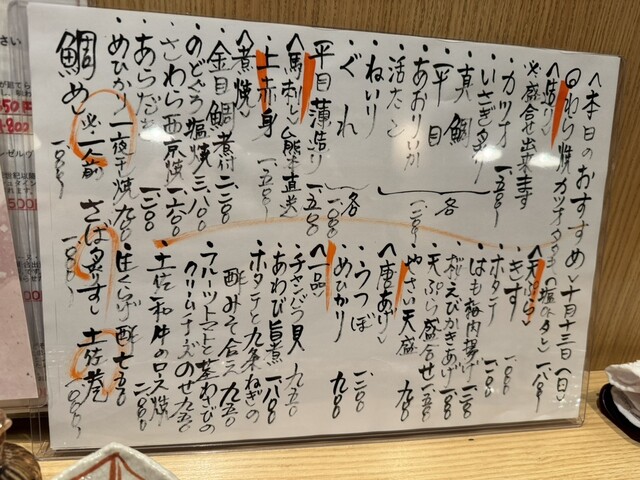 〈本日のおすすめ〉十月十三日(日)
◎わら焼カツオタタキ(塩・タレ)一、八〇〇
〈造り〉
※盛合せ出来ます
・カツオ 一、五〇〇
・いさき炙り
・真鯛
・平目
・あおりいか
・活たこ
各一、二〇〇
・ねいり
・ぐれ
各一、〇〇〇
平目薄造り 一、五〇〇
〈馬刺し〉熊本直送
・上赤身 一、五〇〇
〈煮焼〉
・金目鯛煮付 二、二〇〇
・のどぐろ塩焼 三、八〇〇
・さわら西京焼 一、六〇〇
・あらだき 一、二〇〇
・めひかり一夜干焼 九〇〇
〈天ぷら〉
・きす 一、一〇〇
・ホタテ 一、二〇〇
・はも梅肉揚げ
・桜えびかきあげ
・天ぷら盛合せ
・やさい天盛 九〇〇
〈唐あげ〉
・うつぼ 一、二〇〇
・めひかり 九〇〇
〈一品〉
・チャンバラ貝 九五〇
・あわび旨煮 一、八〇〇
・ホタテと九条ねぎの
酢みそ合え 九五〇
・フルーツトマトと茎わさびの
クリームチーズのせ 九五〇
・土佐和牛のロース焼 二、〇〇〇
・生くらげ酢 七五〇
鯛めし ※二人前 一、八〇〇
さば炙りすし 一、八〇〇
土佐巻 一、〇〇〇